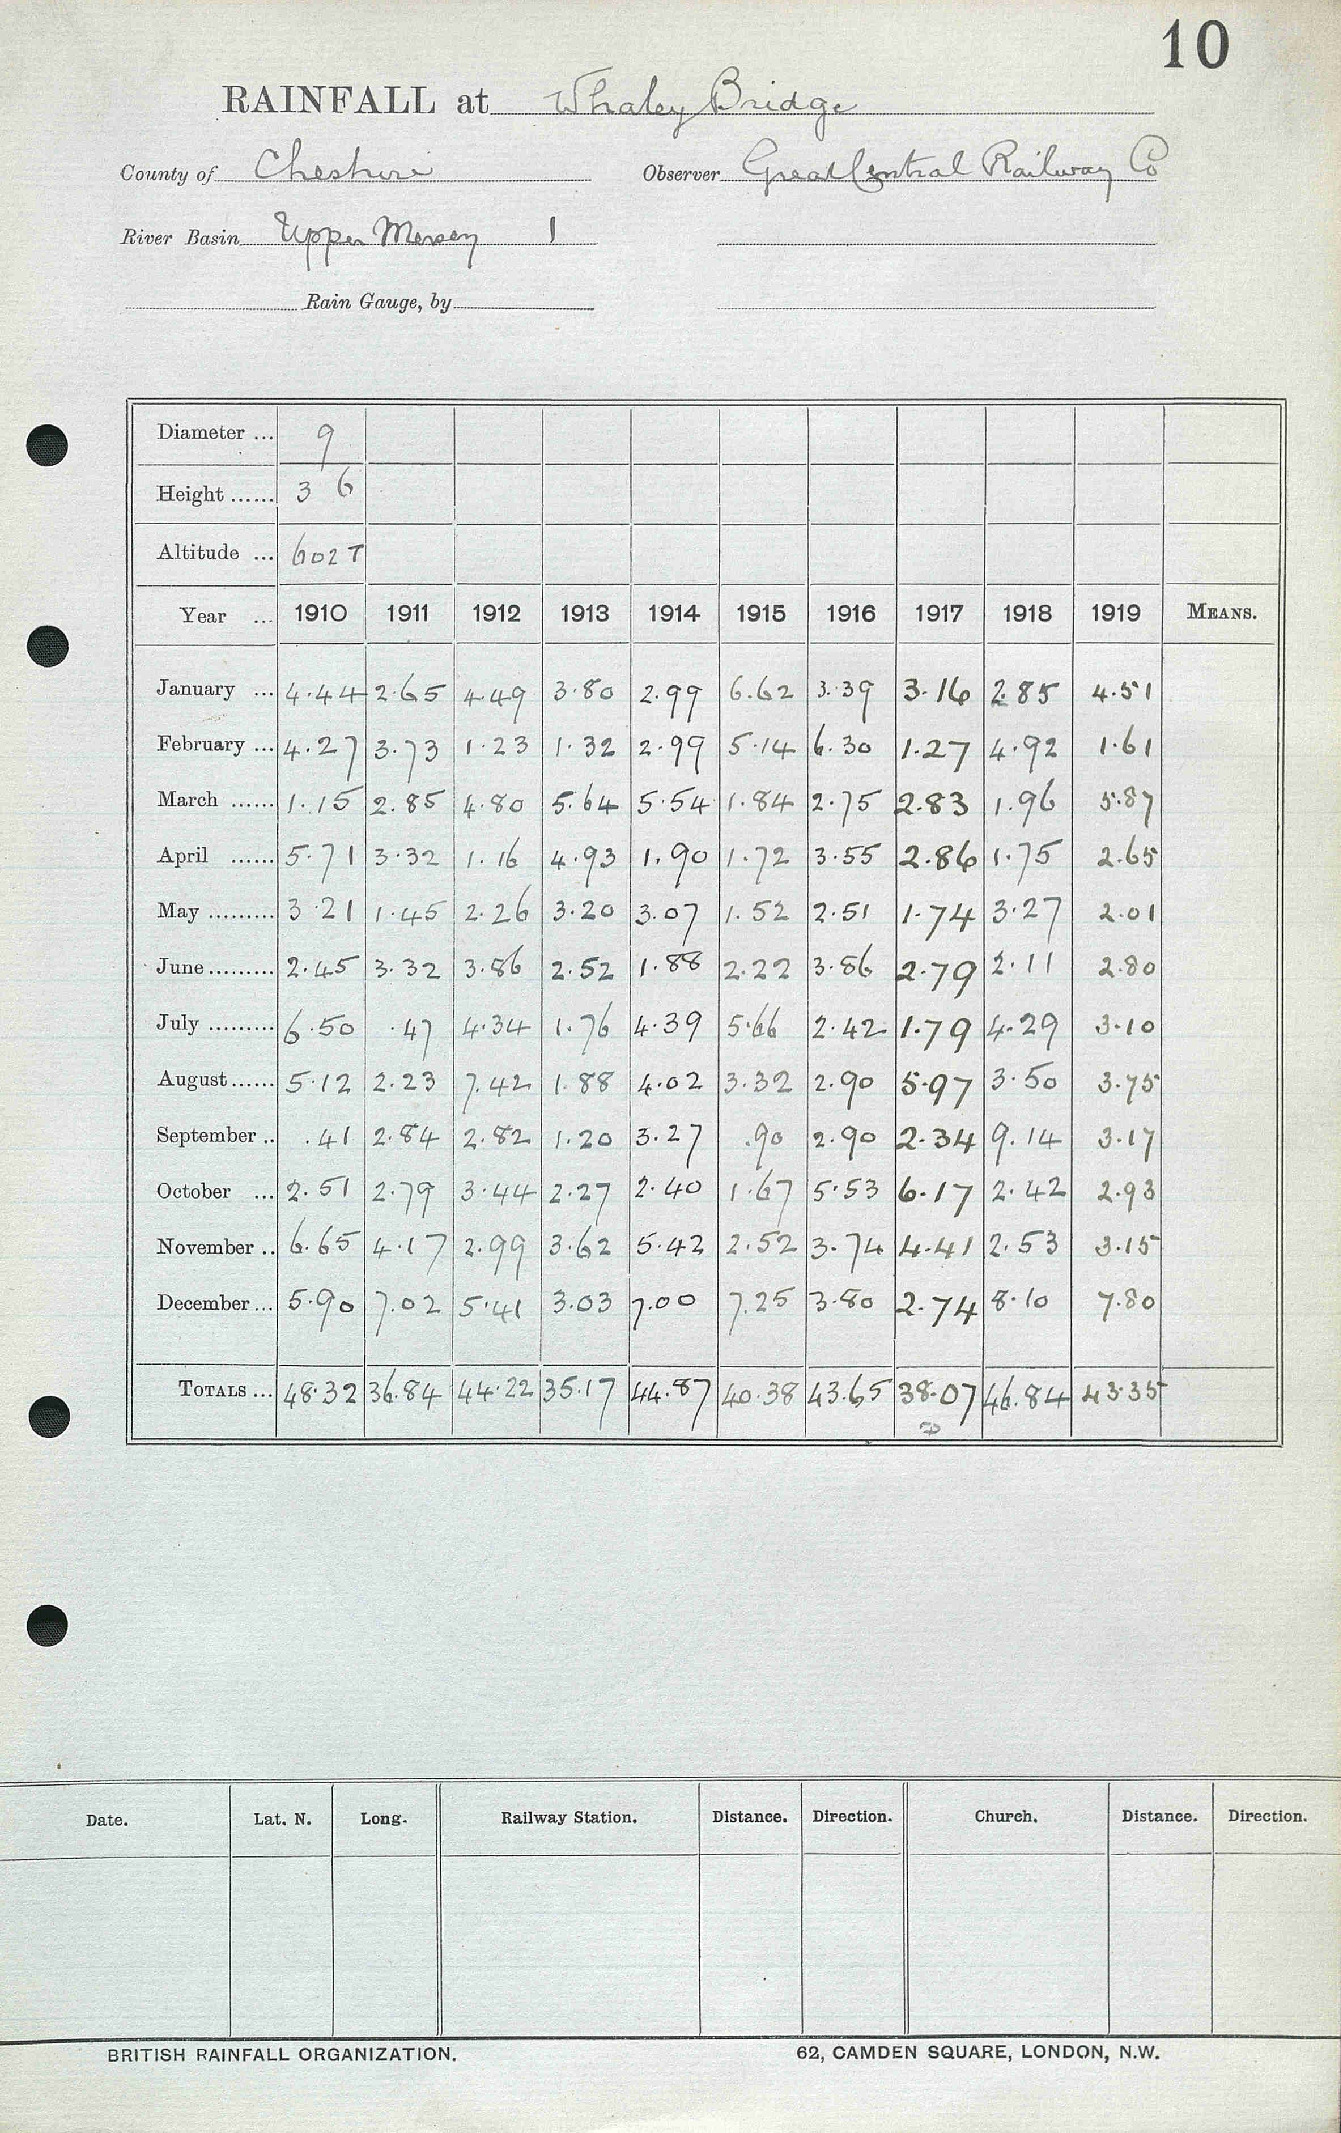 10
RAINFALL at Whaley Bridge
County of Cheshire Observer Great Central Railway Co
River Basin Upper Mersey 1
Rain Gauge, by
Diameter ... 9
Height ...... 3 6
Altitude ... 602 T
Year ... 1910 1911 1912 1913 1914 1915 1916 1917 1918 1919 MEANS.
January ... 4.44 2.65 4.49 3.80 2.99 6.62 3.39 3.16 2.85 4.51
February ... 4.27 3.73 1.23 1.32 2.99 5.14 6.30 1.27 4.92 1.61
March ...... 1.15 2.85 4.80 5.64 5.54 1.84 2.75 2.83 1.96 5.87
April ...... 5.71 3.32 1.16 4.93 1.90 1.72 3.55 2.86 1.75 2.65
May ......... 3 21 1.45 2.26 3.20 3.07 1.52 2.51 1.74 3.27 2.01
June ......... 2.45 3.32 3.86 2.52 1.88 2.22 3.86 2.79 2.11 2.80
July ......... 6.50 .47 4.34 1.76 4.39 5.66 2.42 1.79 4.29 3.10
August ...... 5.12 2.23 7.42 1.88 4.02 3.32 2.90 5.97 3.50 3.75
September .. .41 2.84 2.82 1.20 3.27 .90 2.90 2.34 9.14 3.17
October ... 2.51 2.79 3.44 2.27 2.40 1.67 5.53 6.17 2.42 2.93
November .. 6.65 4.17 2.99 3.62 5.42 2.52 3.74 4.41 2.53 3.15
December ... 5.90 7.02 5.41 3.03 7.00 7.25 3.80 2.74 8.10 7.80
TOTALS ... 48.32 36.84 44.22 35.17 44.87 40.38 43.65 38.07 46.84 43.35
Date. Lat. N. Long. Railway Station. Distance. Direction. Church. Distance. Direction.
BRITISH RAINFALL ORGANIZATION. 62, CAMDEN SQUARE, LONDON, N.W.